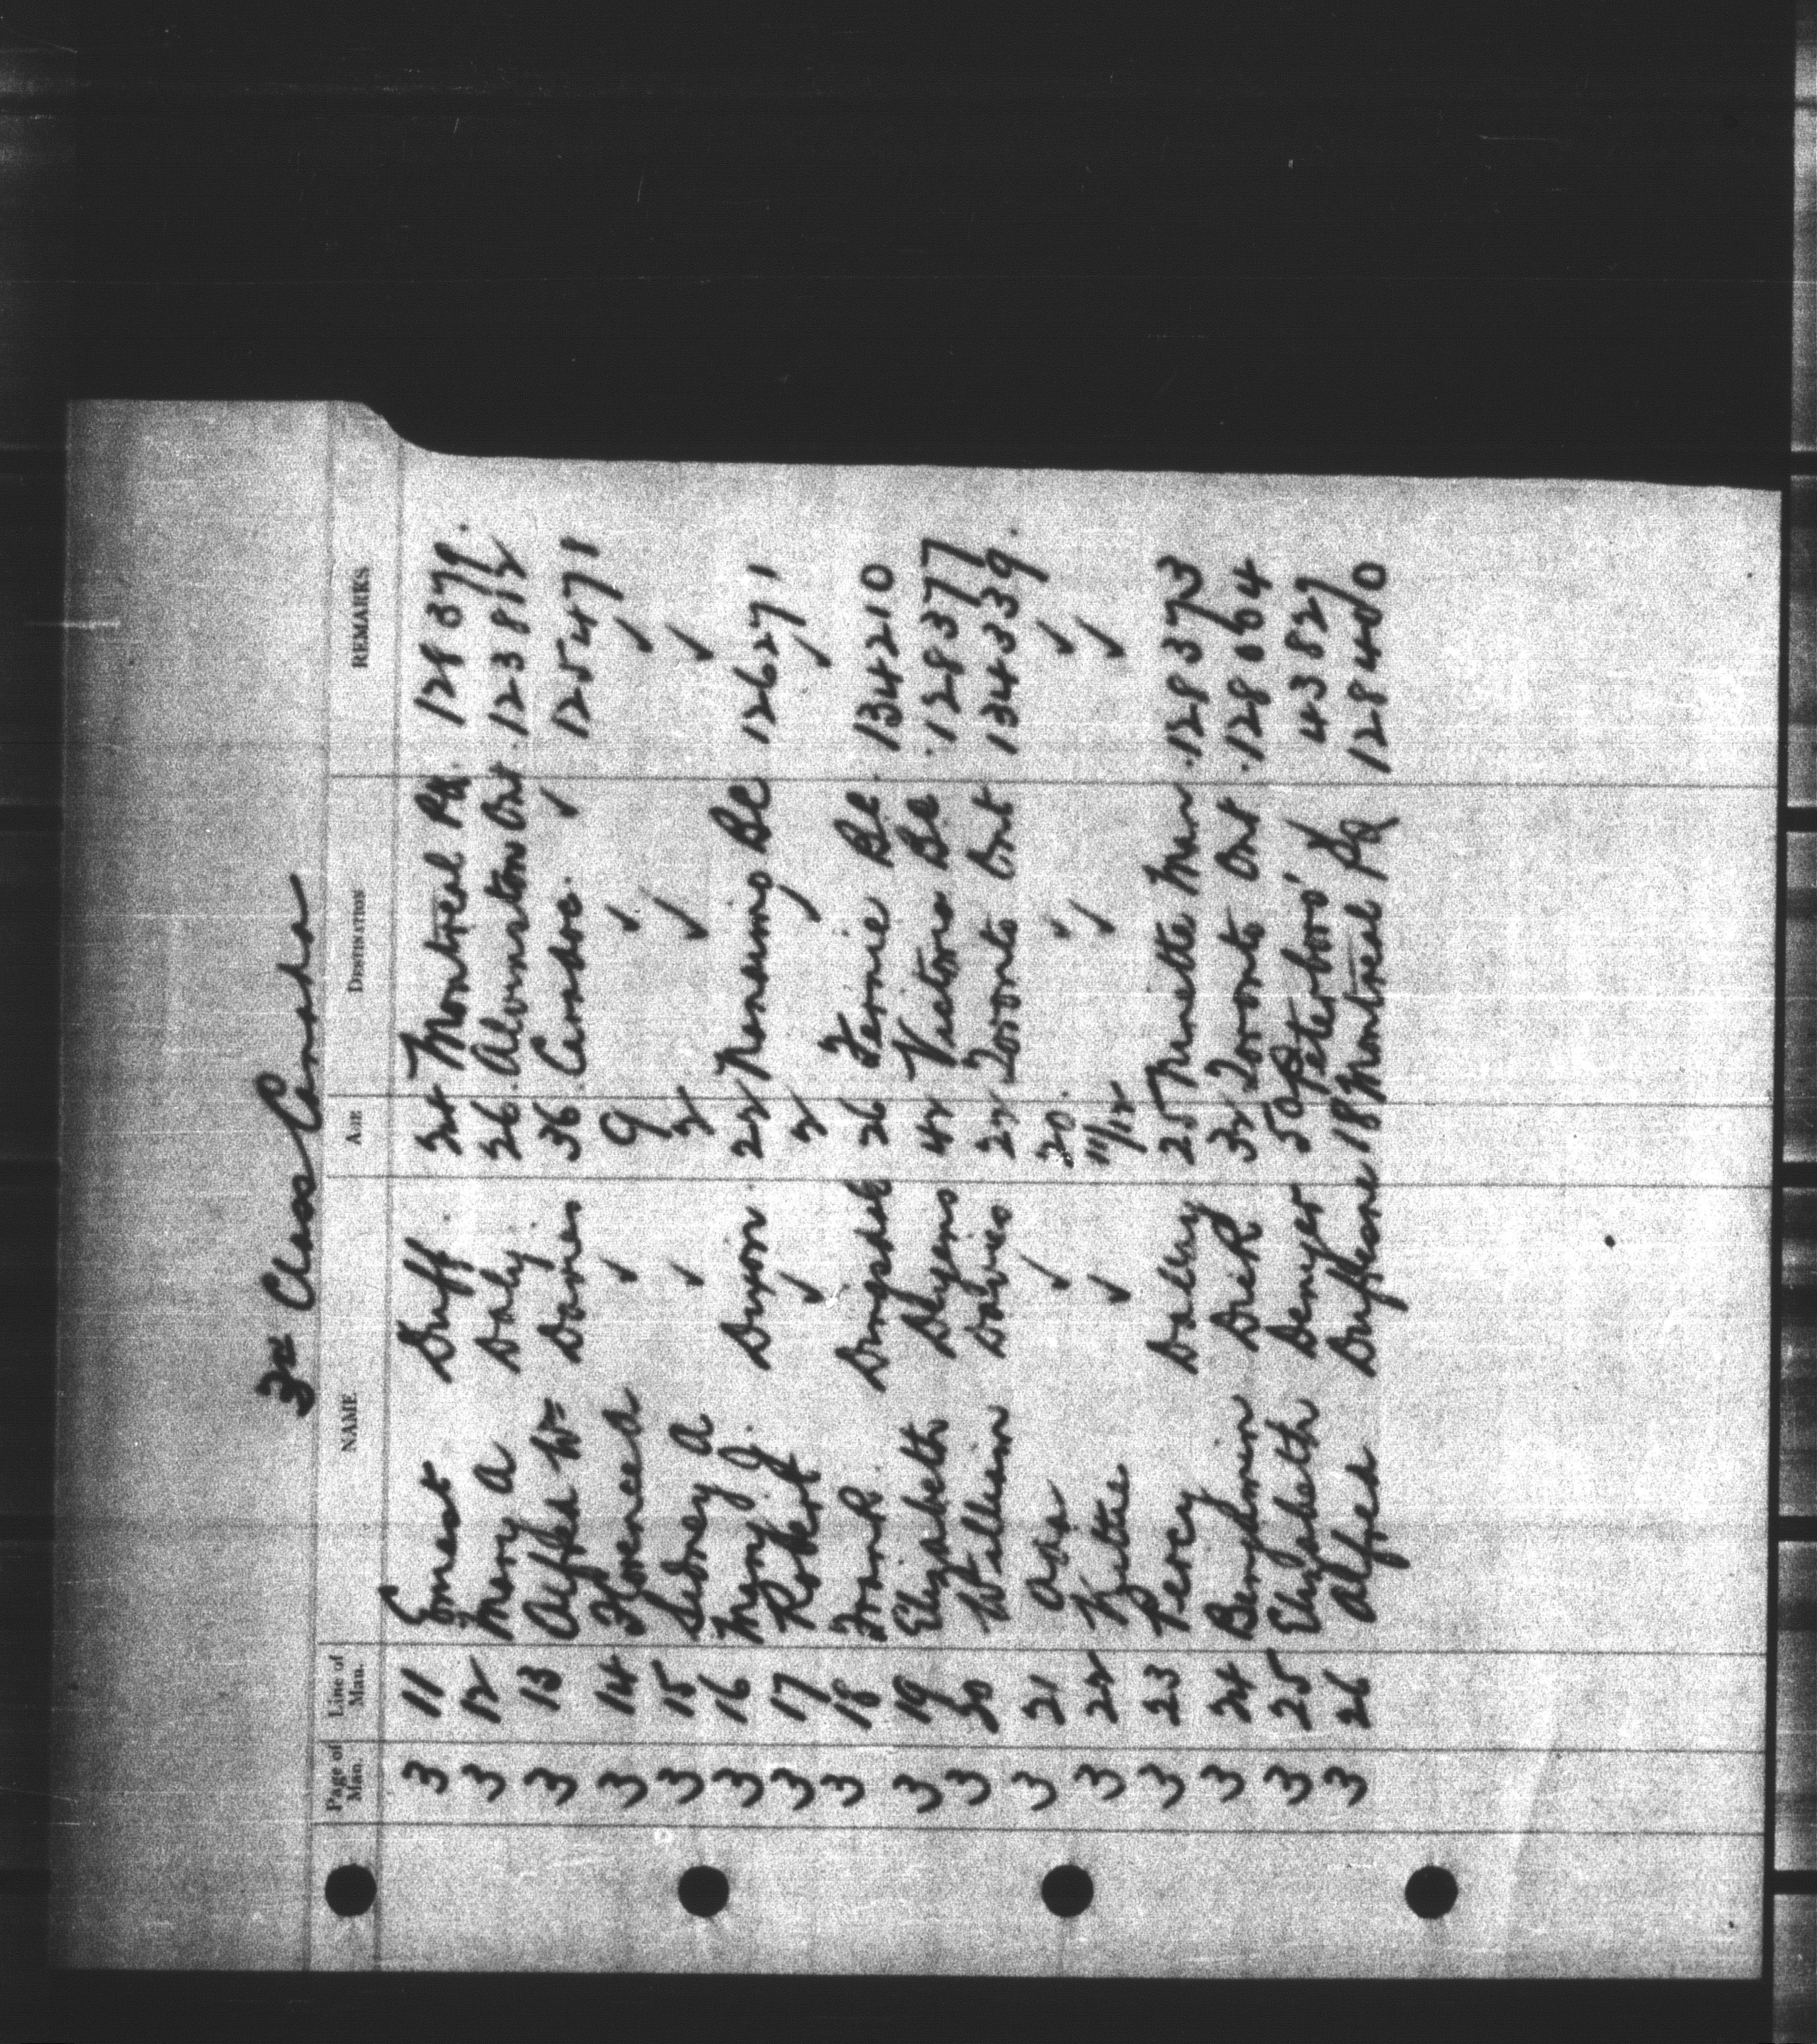 3rd Class Canada
Page of Man. Line of Man. NAME AGE DESTINATION REMARKS
3 11 Ernest Duff 24 Montreal PQ. 128379.
3 12 Mary A Daly 26 Alvinston Ont. 123812
3 13 Alfred W= Danes 36 Canada. ✓ 125471
3 14 Florence A ✓ 9 ✓ ✓
3 15 Sidney A ✓ 2 ✓ ✓
3 16 Mary J. Dixon. 22 Nanaimo BC 126271
3 17 Robert ✓ 2 ✓ ✓
3 18 Frank. 26 Fernie BC. 134210
3 19 Elizabeth 42 Victoria BC. 128377
3 20 William Davies 22 Toronto Ont 134339.
3 21 Ada ✓ 20. ✓ ✓
3 22 ✓ 11/12 ✓ ✓
3 23 Percy 25 Minette Man. 128373
3 24 Benjamin 32 Toronto Ont. 128064
3 25 Elizabeth Denyer 50 Peterboro' 43827
3 26 Alfred 18 Montreal PQ 128400